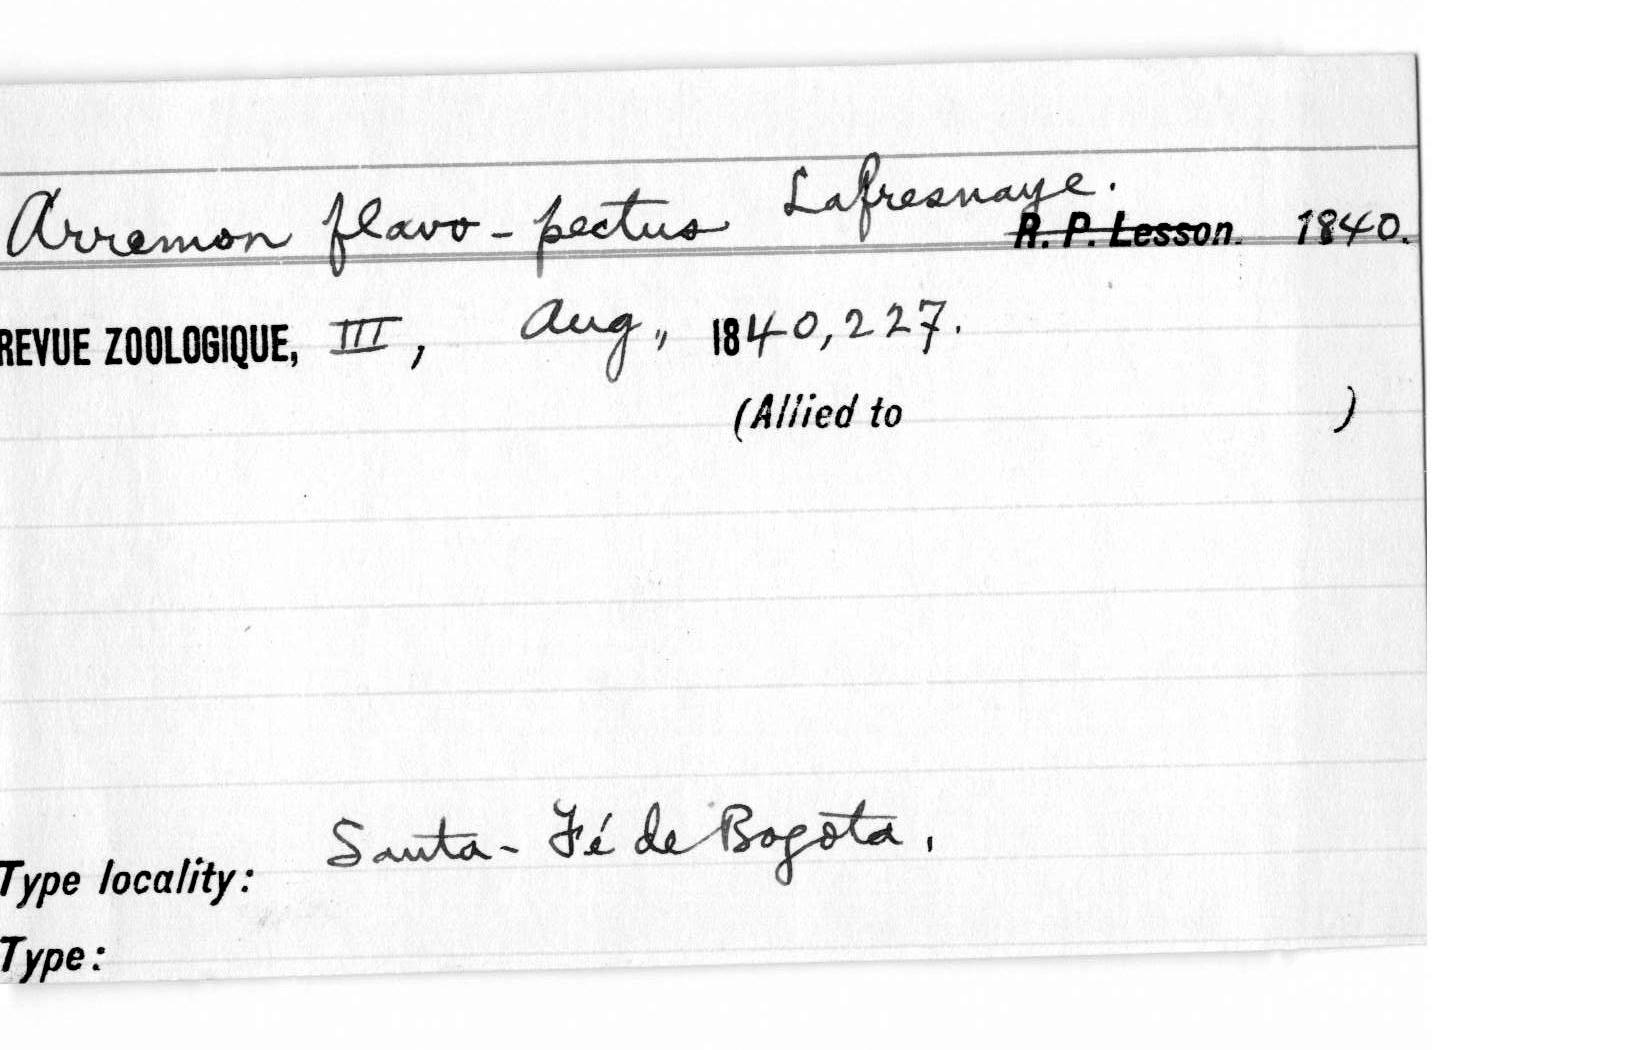 Arremon flavo-pectus Lafresnaye. R. P. Lesson. 1840.
REVUE ZOOLOGIQUE, III, Aug,, 1840, 227.
(Allied to )
Santa-Fé de Bogota.
Type locality:
Type: